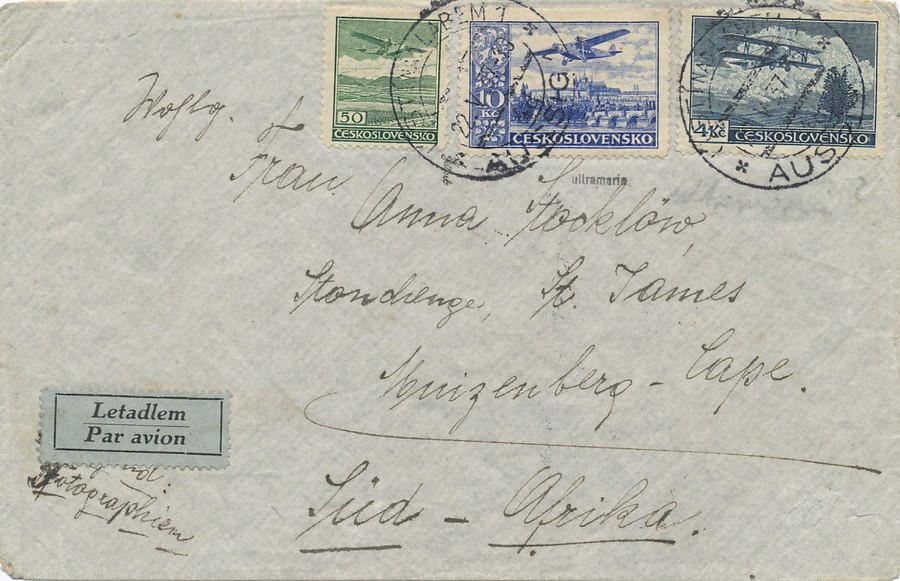 50
ČESKOSLOVENSKO
10
Kč
ČESKOSLOVENSKO
4 Kč
ČESKOSLOVENSKO
LABEM 1
AUSSIG
AUS
ultramarin
Wohlg.
Frau
Anna Stocklöw
Stonehenge, St. James
Muizenberg - Cape.
Süd - Afrika.
Letadlem
Par avion
Photographien